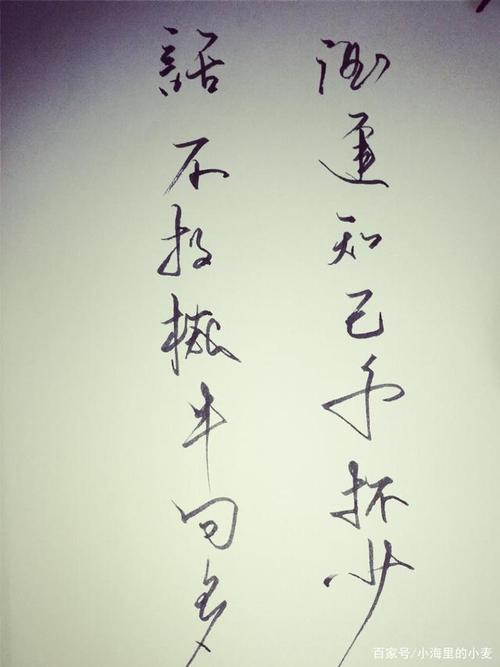 酒逢知己千杯少
話不投機半句多
百家号/小海里的小麦